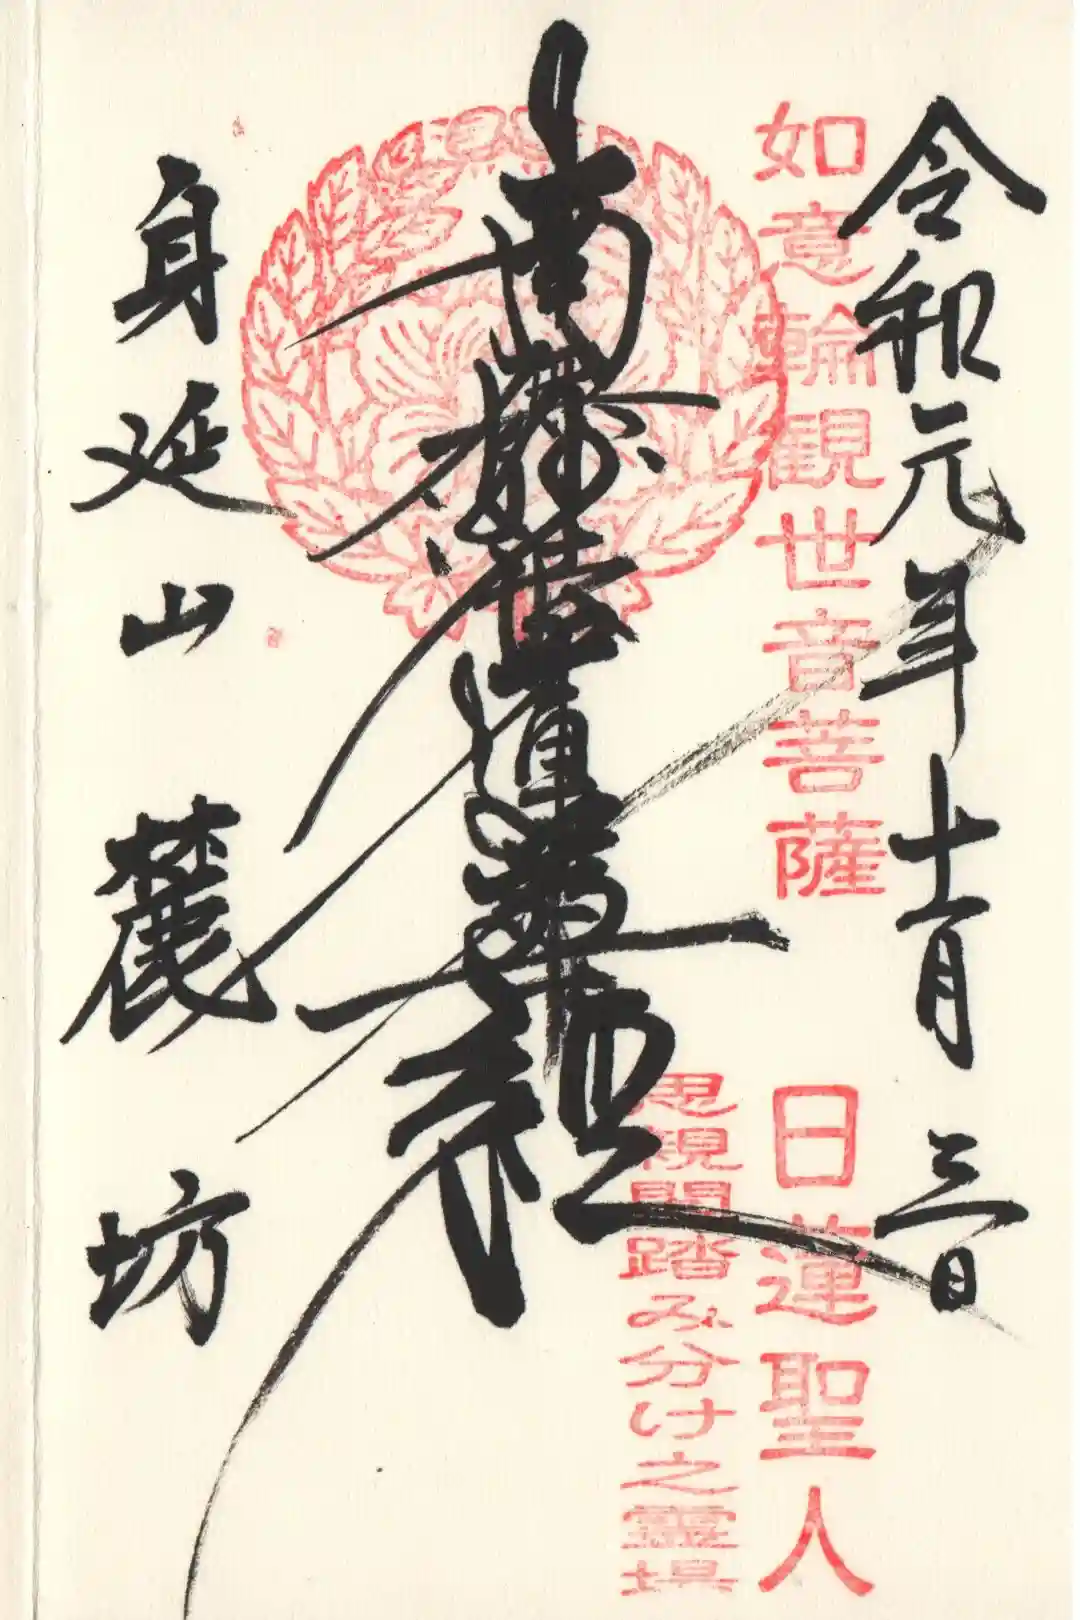 令和元年十一月三日
如意輪観世音菩薩
日蓮聖人
思親閣踏み分け之霊場
南無妙法蓮華経
身延山
麓坊